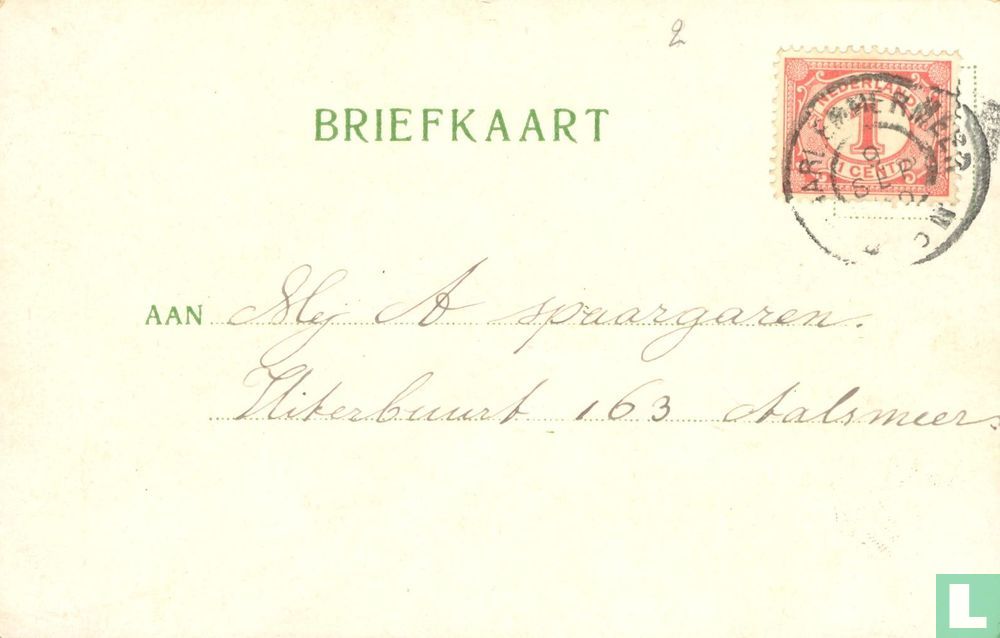 2
BRIEFKAART
NEDERLAND
1
1 CENT
HAARLEMMERMEER
9
SEP
AAN Mej A spaargaren.
Uiterbuurt 163 Aalsmeer
L